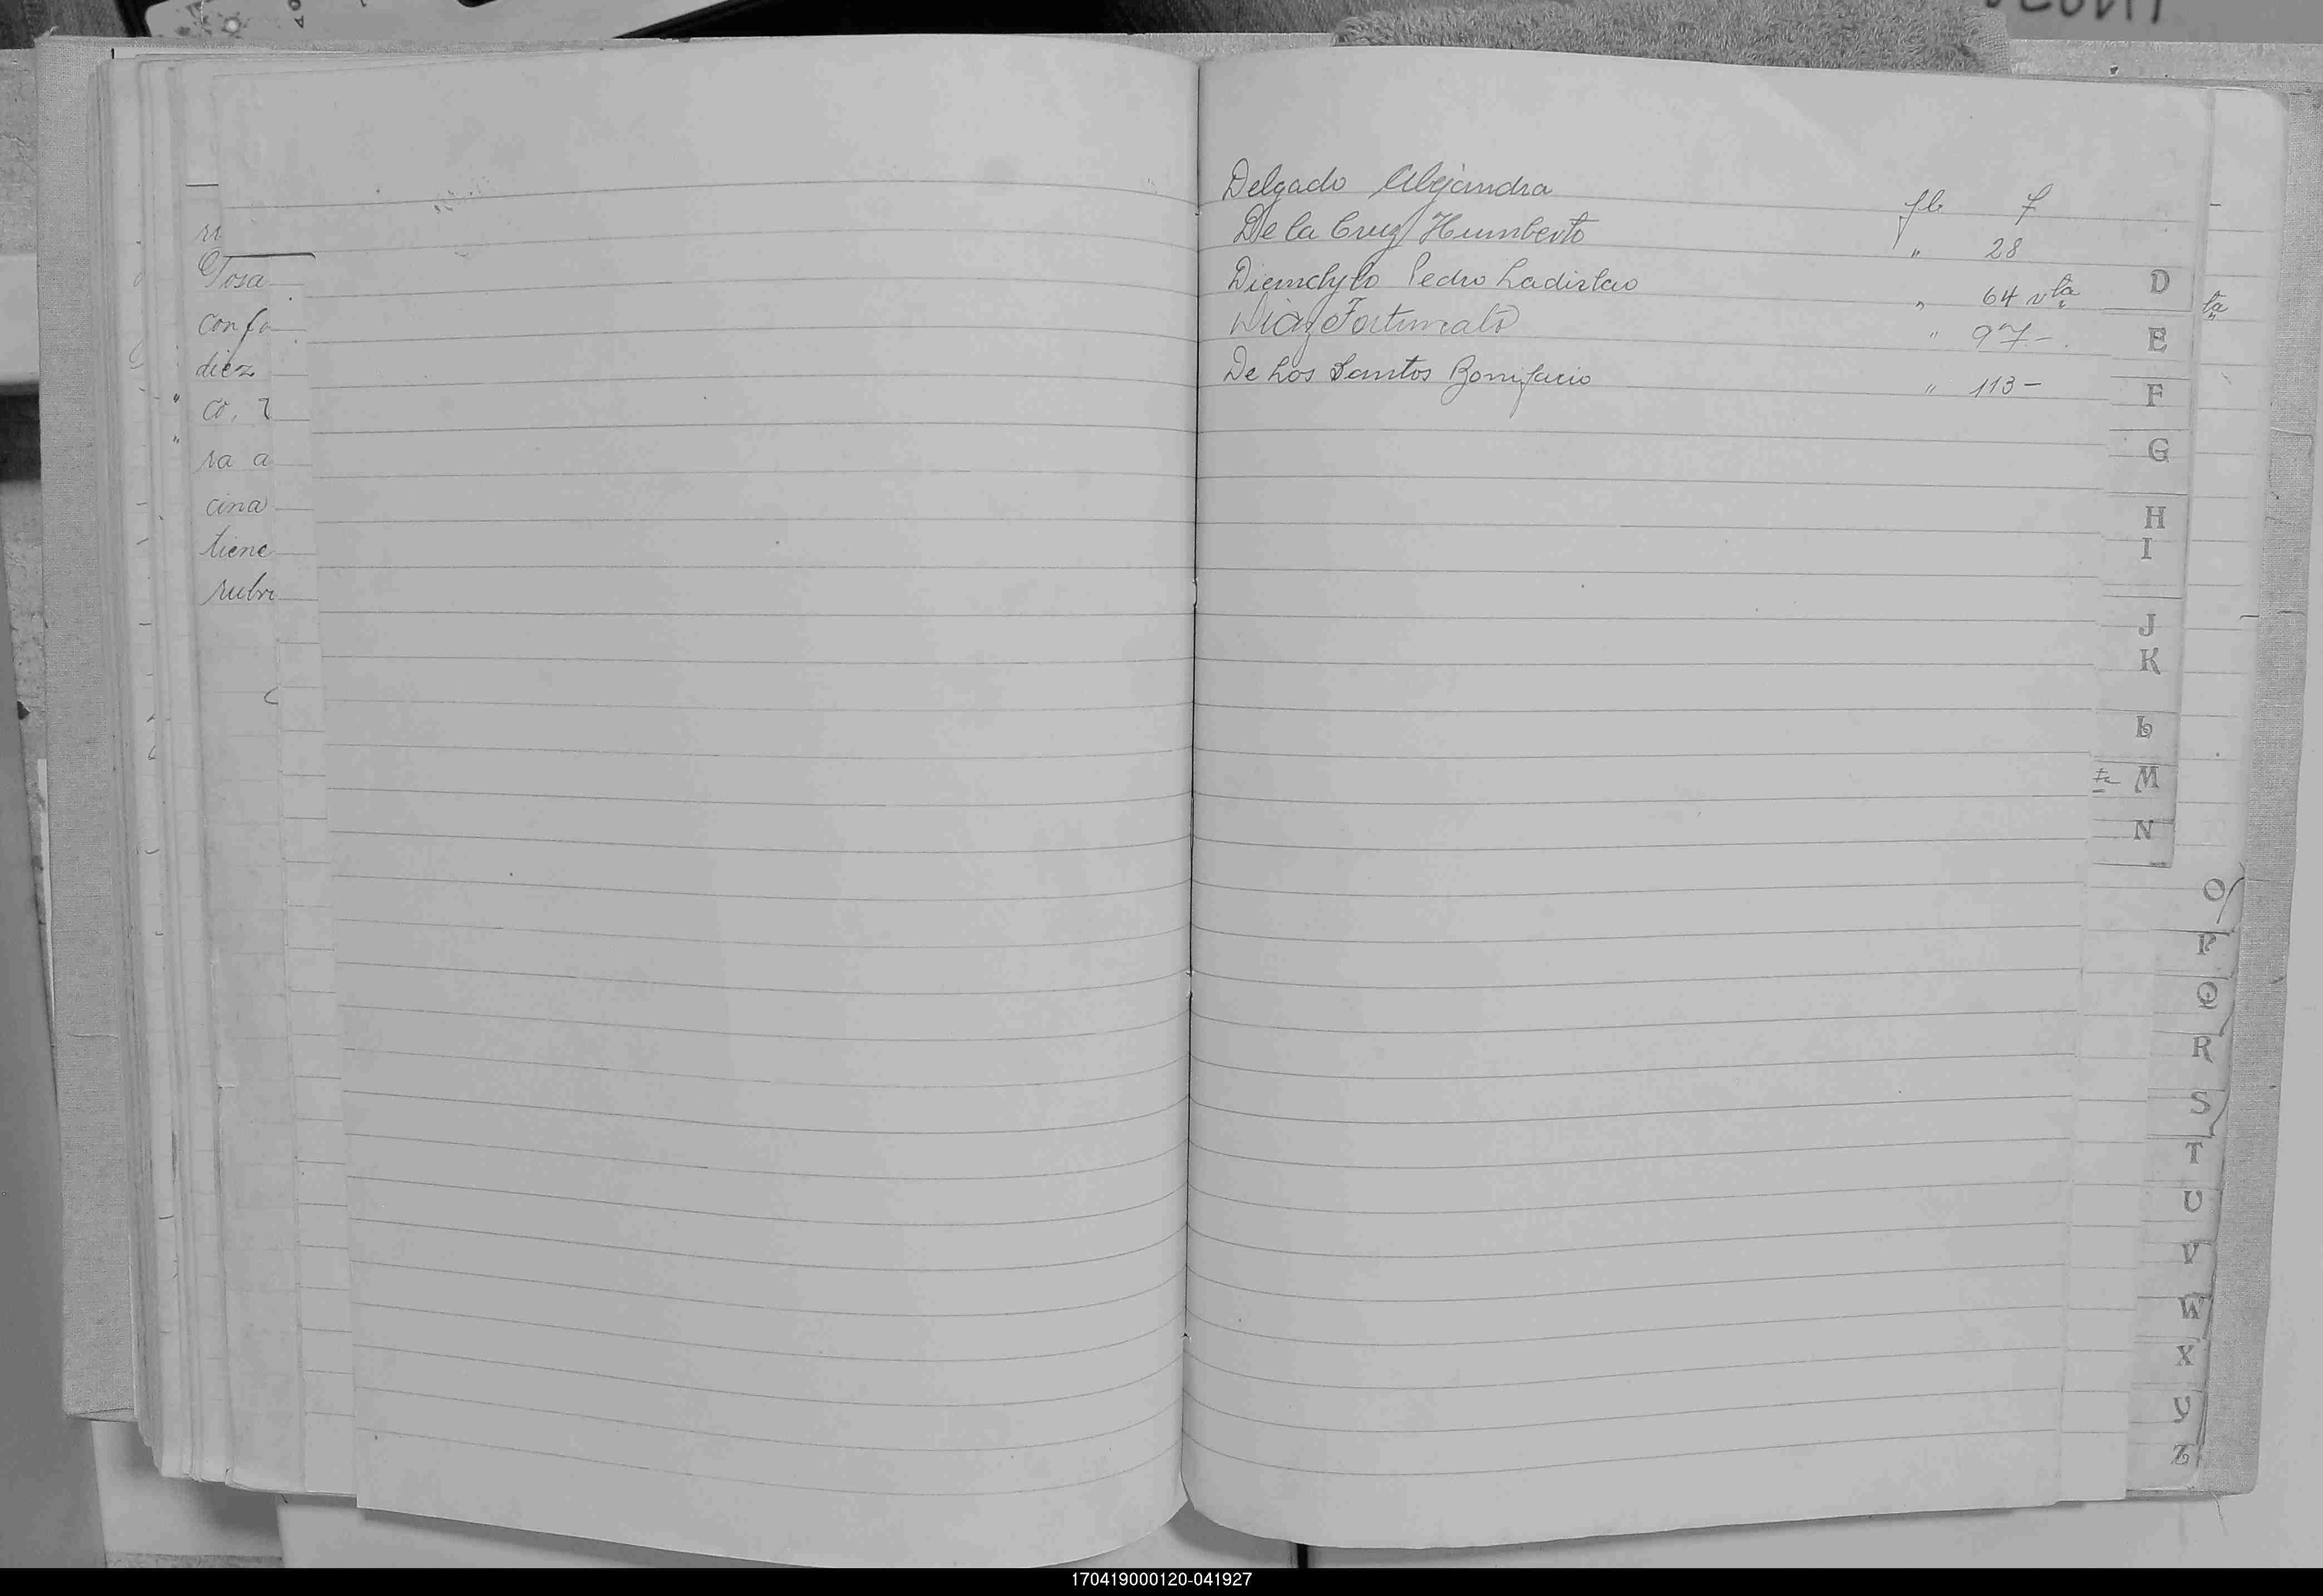 Tosa
confo
diez
co,
ra a
cina
tiene
rubri
Delgado Alejandra fl 7
De la Cruz Humberto " 28
Pedro Ladislao " 64 vta
Diaz Fortunato " 97 -
De Los Santos Bonifacio " 113 -
D
E
F
G
H
I
J
K
L
M
N
O
P
Q
R
S
T
U
V
W
X
Y
Z
170419000120-041927